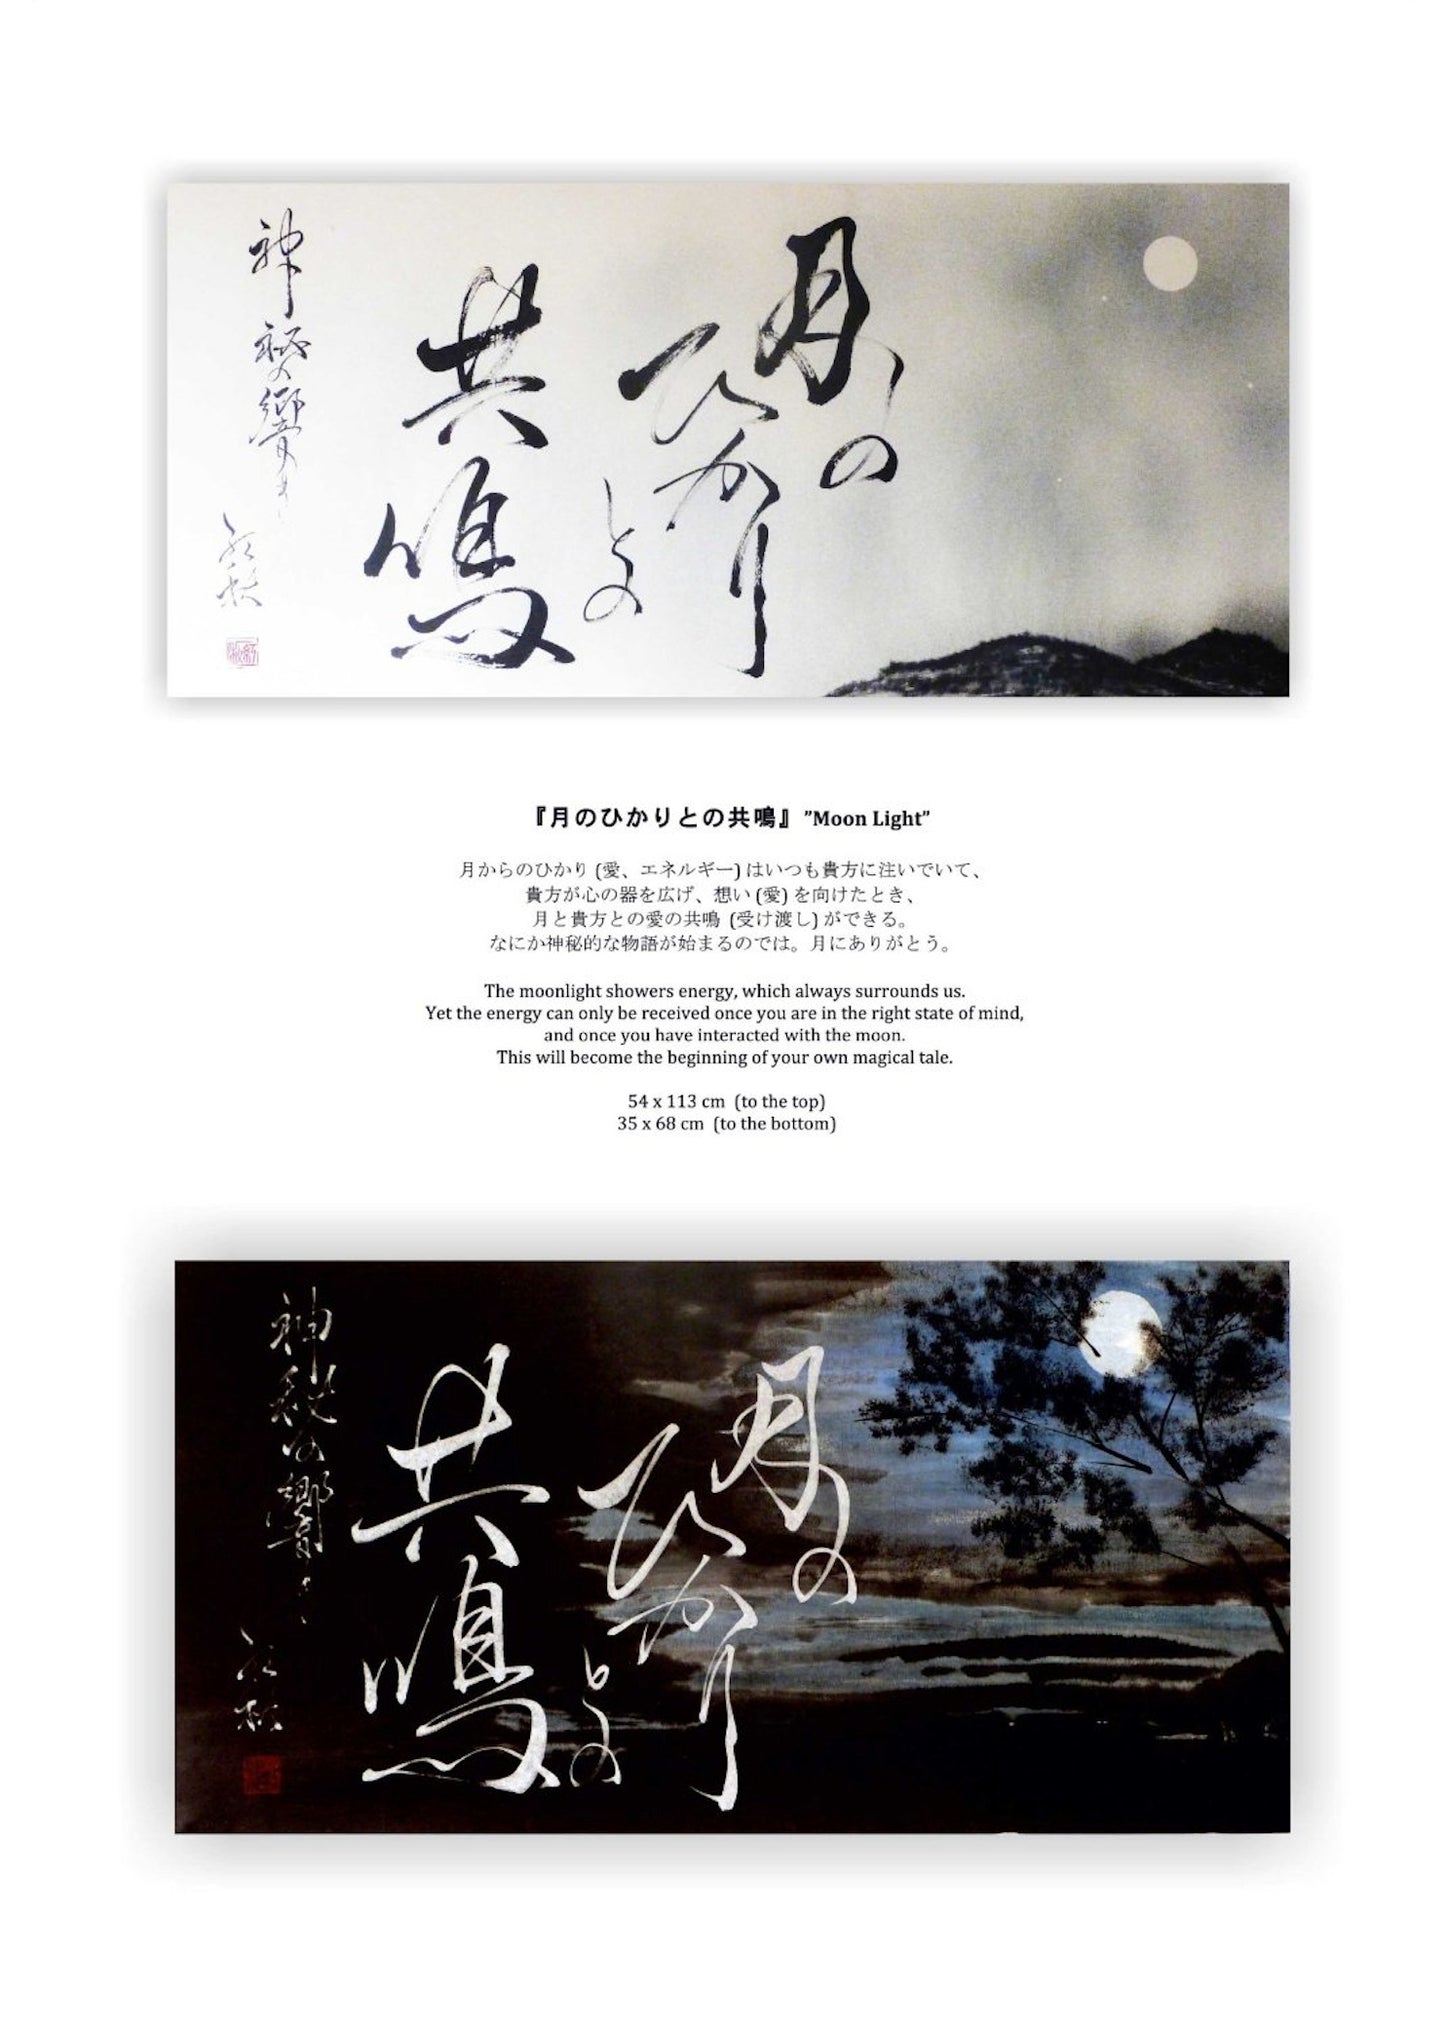 月の
ひかり
との
共鳴
神秘の響き
『月のひかりとの共鳴』 ”Moon Light”
月からのひかり (愛、エネルギー) はいつも貴方に注いでいて、
貴方が心の器を広げ、想い (愛) を向けたとき、
月と貴方との愛の共鳴 (受け渡し) ができる。
なにか神秘的な物語が始まるのでは。月にありがとう。
The moonlight showers energy, which always surrounds us.
Yet the energy can only be received once you are in the right state of mind,
and once you have interacted with the moon.
This will become the beginning of your own magical tale.
54 x 113 cm (to the top)
35 x 68 cm (to the bottom)
月の
ひかり
との
共鳴
神秘の響き